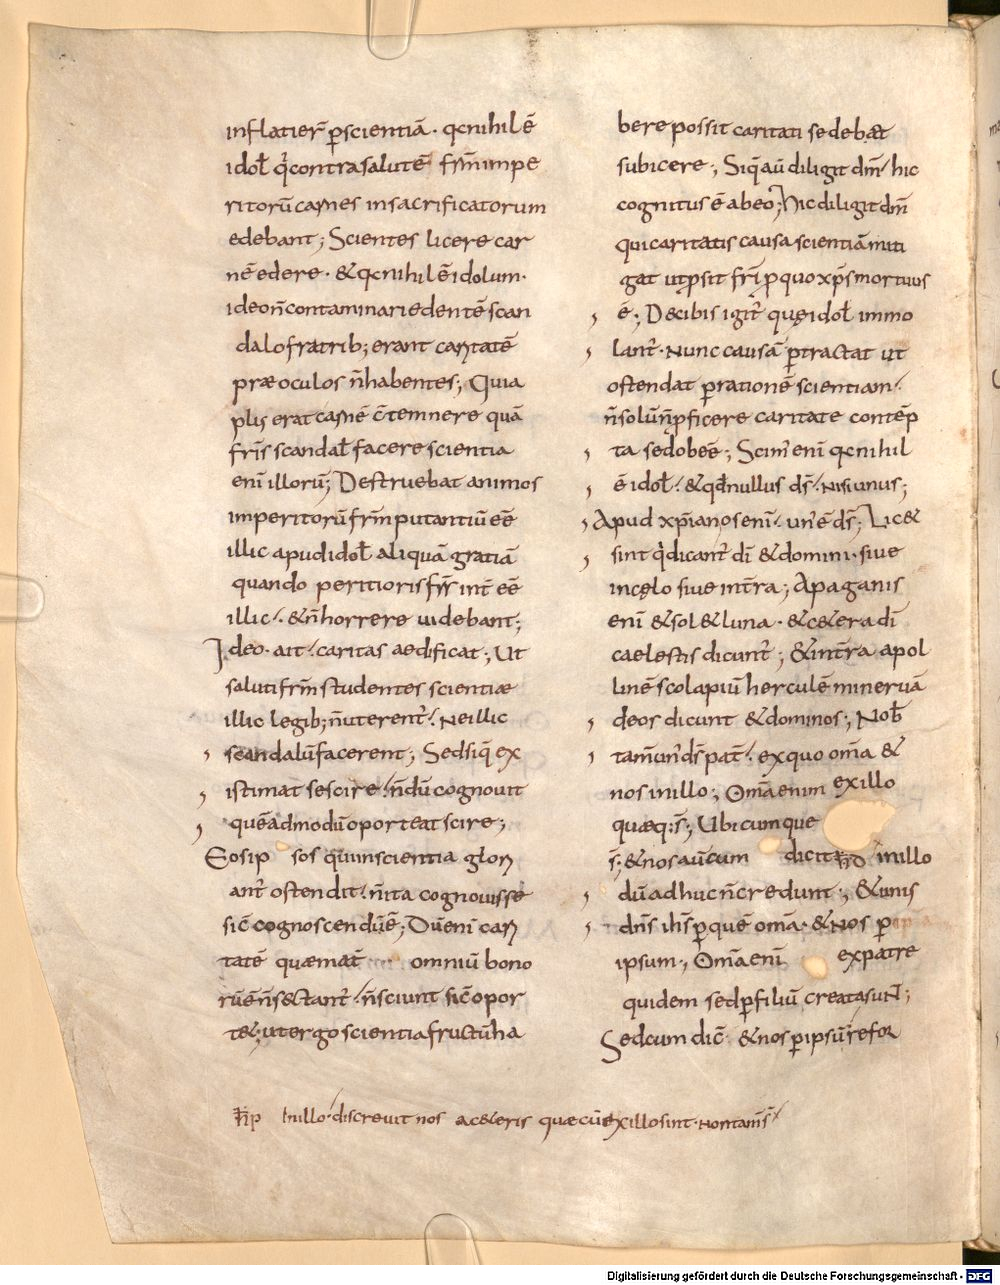 inflatier̄ p̱scientiā · qcnihil ē
idoł q̇contrasalutē fr̄m̄ impe
ritorū carnes insacrificatorum
edebant; Scientes licere car
nē edere · &qcnihil ēidolum·
ideoñcontaminari edentē scan
dalo fratrib; erant caritatē
præoculos ñhabentes; Quia
plis erat carnē c̄temnere quā
fr̄is scandał facere scientia
enī illorū; Destruebat animos
imperitorū fr̄m putantiū eē
illic apud idoł aliquā gratiā
quando peritioris fr̄r̄ int̄ eē
illic ·⁄ &ñhorrere uidebant;
Ideo · ait ·⁄ caritas aedificat; Ut
saluti fr̄m studentes scientiæ
illic legib; ñuterent̄ ·⁄ Neillic
scandalūfacerent; Sedsiq̄ ex
istimat sescire ·⁄ ñdū cognouit
quēadmodū oporteat scire;
Eosip sos quiinscientia glori
ant̄ ostendit ·⁄ ñita cognouisse
sic̄ cognoscendūē; Dūenī cari
tatē quæmat̄ omniū bono
rū ē ñsectant̄ ·⁄ ñsciunt sic̄ opor
t&; utergo scientia fructūha
bere possit caritati sedebæt
subicere; Siq̄ aū diligit dm̄ ·⁄ hic
cognitus ē abeo; Hic diligit dm̄
qui caritatis causa scientiā miti
gat utp̱sit fr̄i p̱quo xp̄s mortuus
ē; Decibis igit̄ quęidoł immo
lant̄ · Nunc causā p̱tractat ut
ostendat p̱rationē scientiam ·⁄
ñsolūñp̱ficere caritate contēp
ta sedobeē; Scim' enī qcnihil
ē idoł ·⁄ &qd̄nullus ds̄ ·⁄ Nisi unus;
Apud xp̄ianos enī ·⁄ un' ē ds̄; Lic&
sint q̇dicant̄ di̅ &domini · siue
incęlo siue int̄ra; Apaganis
enī &sol &luna · &c&era di̅
caelestis dicunt̄; &int̄ra apol
linē scolapiū herculē mineruā
deos dicunt &dominos; Nob̄
tam̄un'ds̄ pat̄ ·⁄ exquo om̄a &
nos inillo; Om̄a enim exillo
quæq:s̄; Ubicumque
s̄; &nos aūcum dicit inillo
dū adhuc ñcredunt; &unis
dn̄s ih̄s p̱quē om̄a · &nos p̱
ipsum; Om̄a enī expatre
quidem sed p̱filiū creata sunt;
Sedcum dic̄ &nos p̱ipsū refor
Inillo ·⁄ discreuit nos ac&eris quæcūexillosint · Nontam̄ s̄
Digitalisierung gefördert durch die Deutsche Forschungsgemeinschaft - DFG